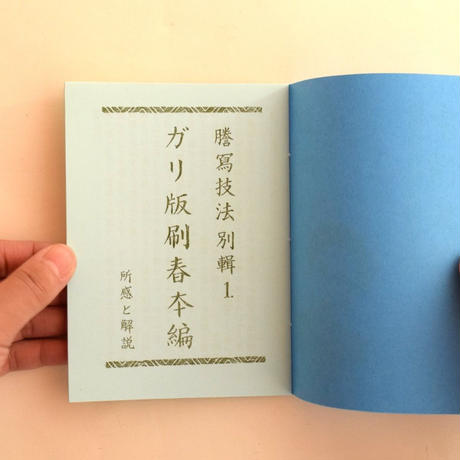 謄寫技法別輯1.
ガリ版刷春本編
所感と解説